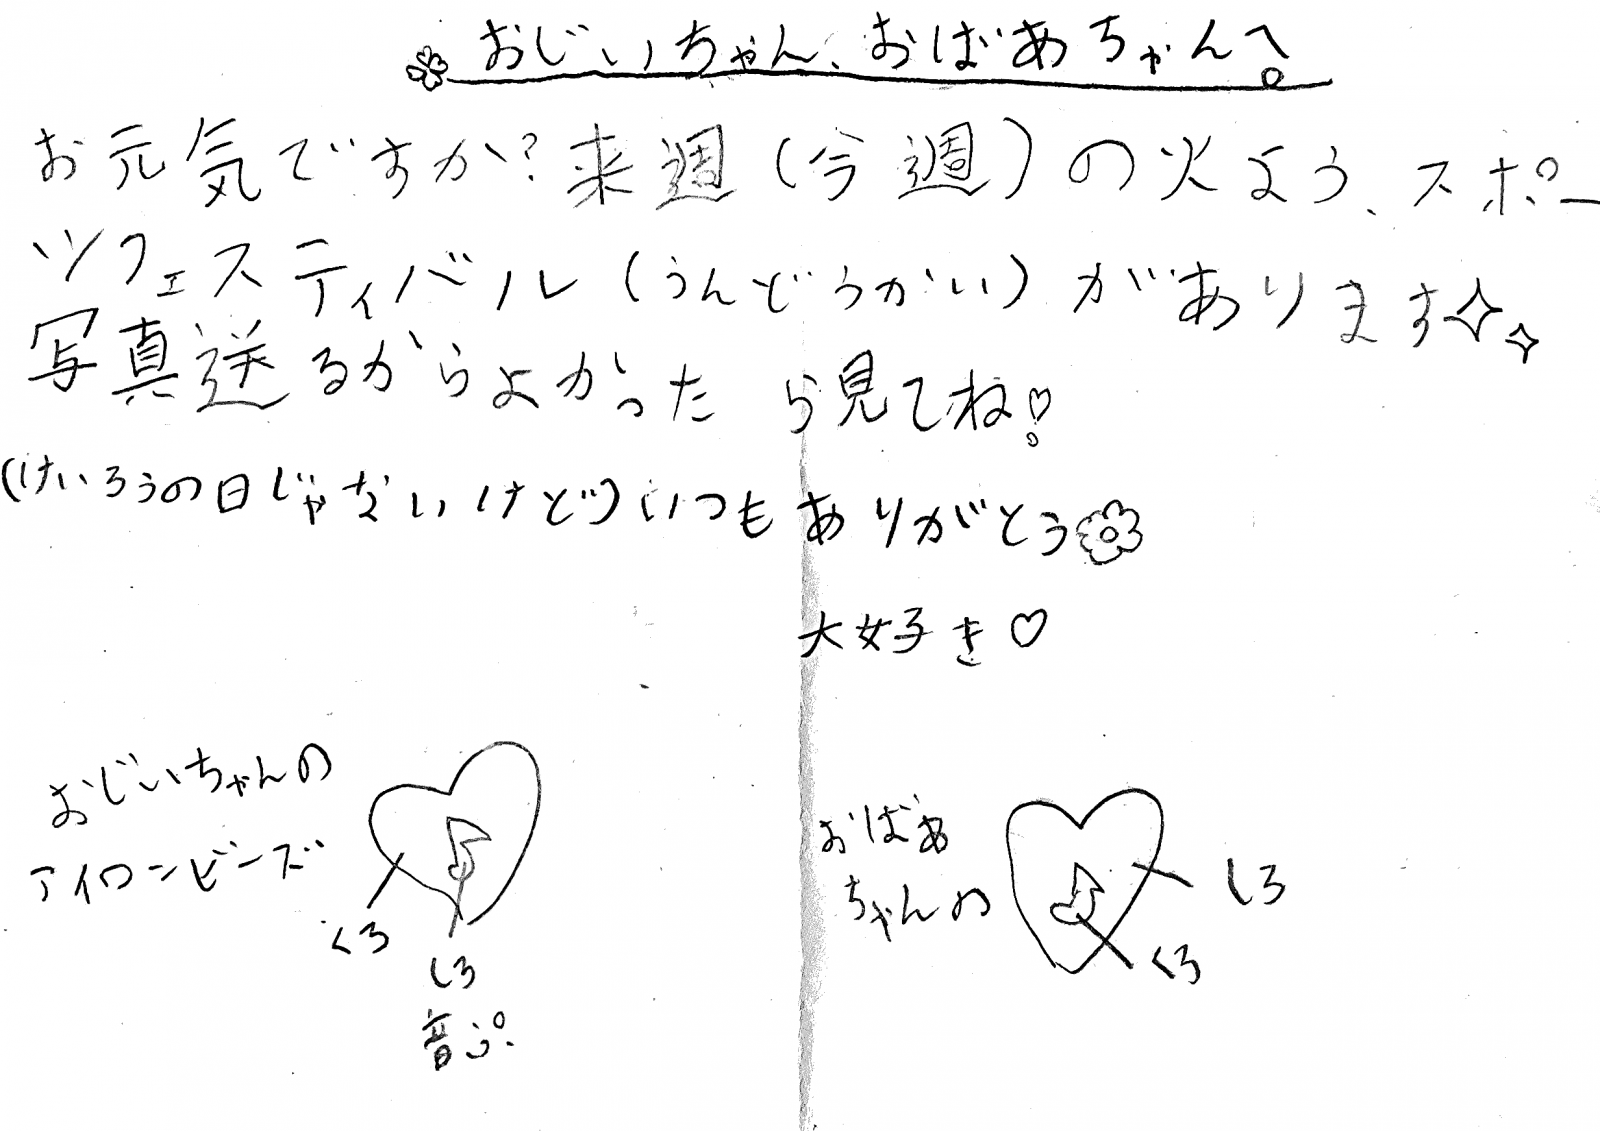 おじいちゃん、おばあちゃんへ。
お元気ですか？来週（今週）の火よう、スポー
ツフェスティバル（うんどうかい）があります
写真送るからよかったら見てね!
（けいろうの日じゃないけど）いつもありがとう
大好き♡
おじいちゃんの
アイロンビーズ
くろ
しろ
音ぷ
おばあ
ちゃんの
しろ
くろ